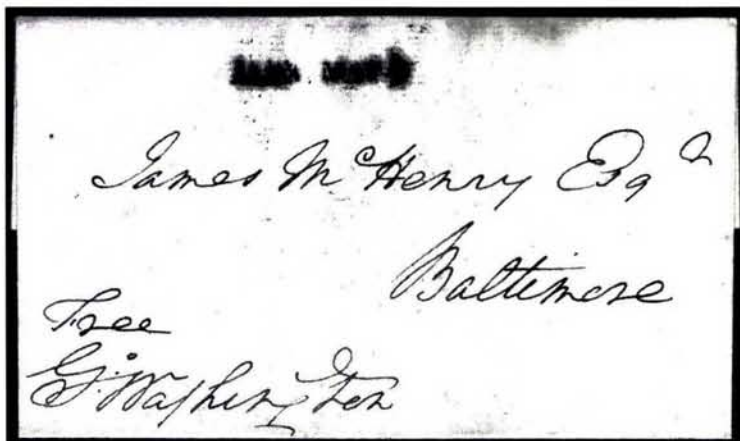 James McHenry Esqr
Baltimore
Free
G:Washington